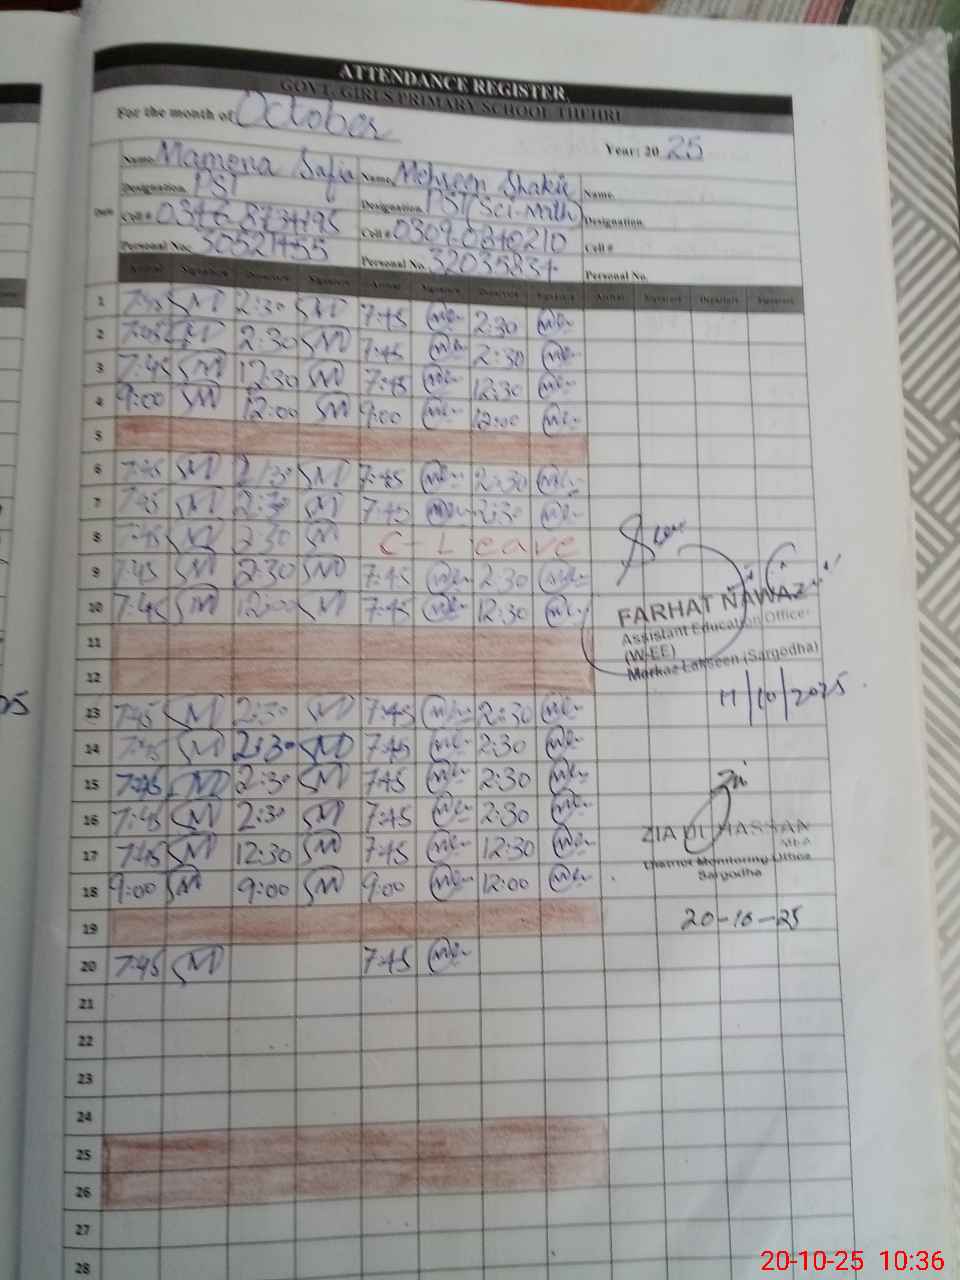 ATTENDANCE REGISTER.
GOVT. GIRLS PRIMARY SCHOOL THEHRI
For the month of October Year: 20 25
Name. Mamena Safia Name. Mehseen Shakir Name.
Designation. PST Designation. PST(Sci-Math) Designation.
Date Cell # 0346 8734195 Cell # 0309-0840210 Cell #
Personal No. 30521455 Personal No. 32035834 Personal No.
Arrival Signature Departure Signature Arrival Signature Departure Signature Arrival Signature Departure Signature
1 7:45 SM 2:30 SM 7:45 2:30
2 7:45 SM 2:30 SM 7:45 2:30
3 7:45 SM 12:30 SM 7:45 12:30
4 9:00 SM 12:00 SM 9:00 12:00
5
6 7:45 SM 2:30 SM 7:45 2:30
7 7:45 SM 2:30 SM 7:45 2:30
8 7:45 SM 2:30 SM C-Leave
9 7:45 SM 2:30 SM 7:45 2:30
10 7:45 SM 12:00 SM 7:45 12:30
FARHAT NAWAZ
Assistant Education Officer
(W-EE)
Markaz Lakseen (Sargodha)
11
12
11/10/2025
13 7:45 SM 2:30 SM 7:45 2:30
14 7:45 SM 2:30 SM 7:45 2:30
15 7:45 SM 2:30 SM 7:45 2:30
16 7:45 SM 2:30 SM 7:45 2:30
17 7:45 SM 12:30 SM 7:45 12:30
18 9:00 SM 9:00 SM 9:00 12:00
ZIA UL HASSAN
MEA
District Monitoring Office
Sargodha
19
20-10-25
20 7:45 SM 7:45
21
22
23
24
25
26
27
28
20-10-25 10:36